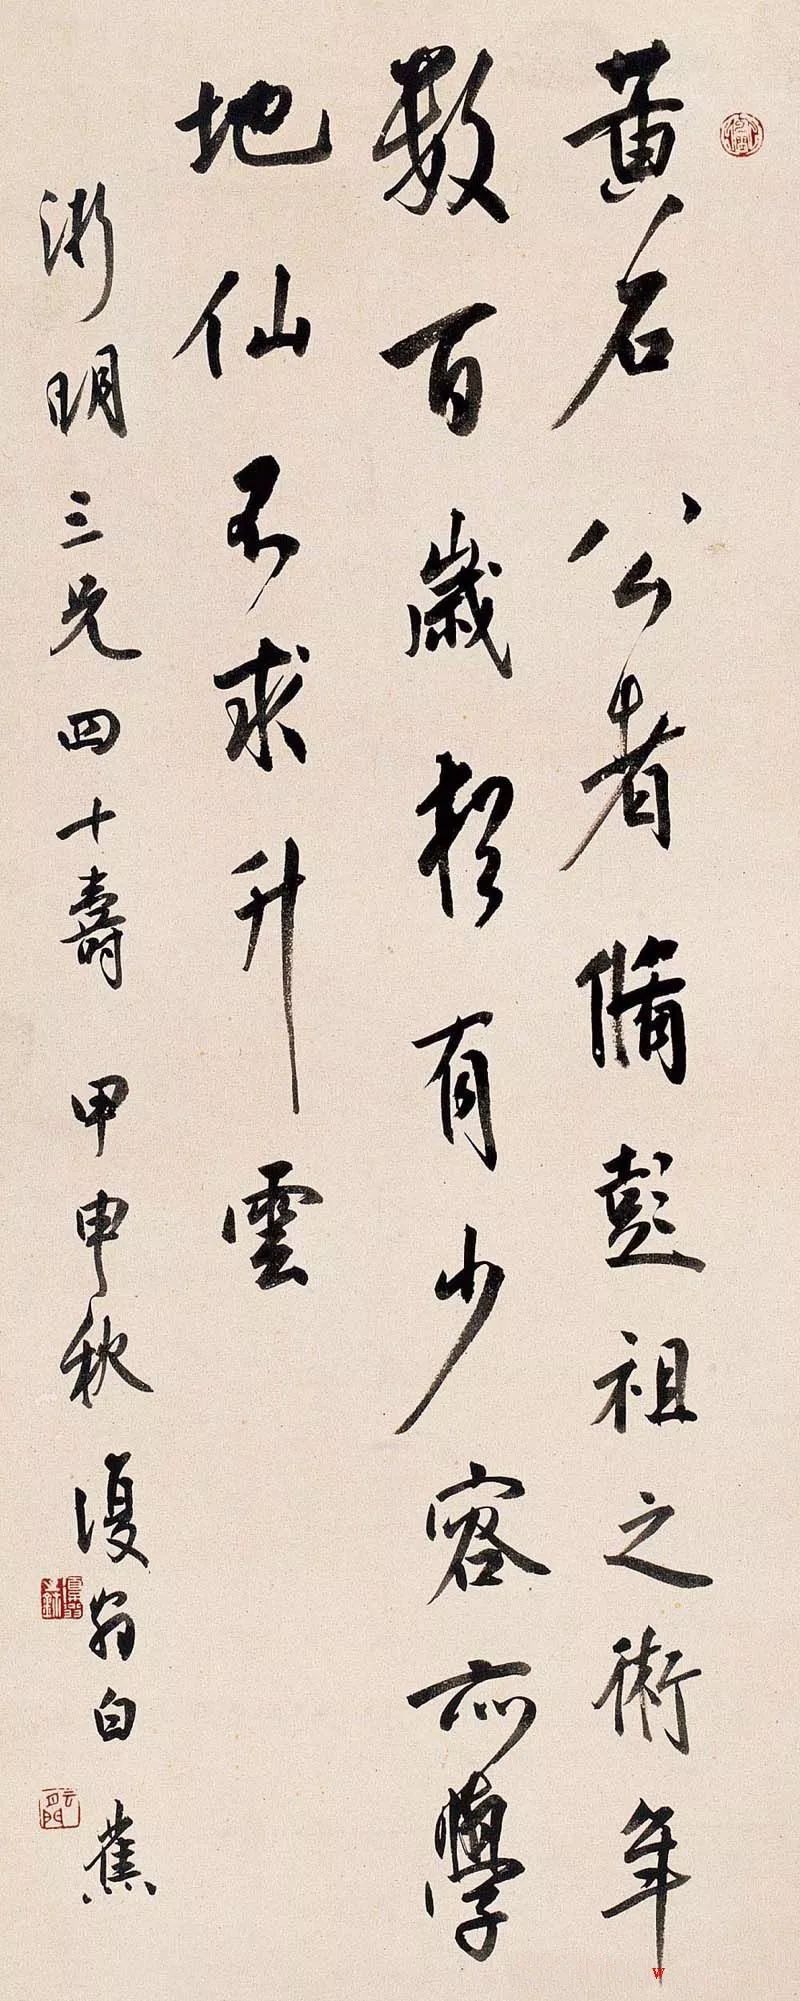 黄石公者脩彭祖之術年
數百歲有少容亦學
地仙不求升雲
浙明三兄四十壽 甲申秋 復翁白蕉
云間
W